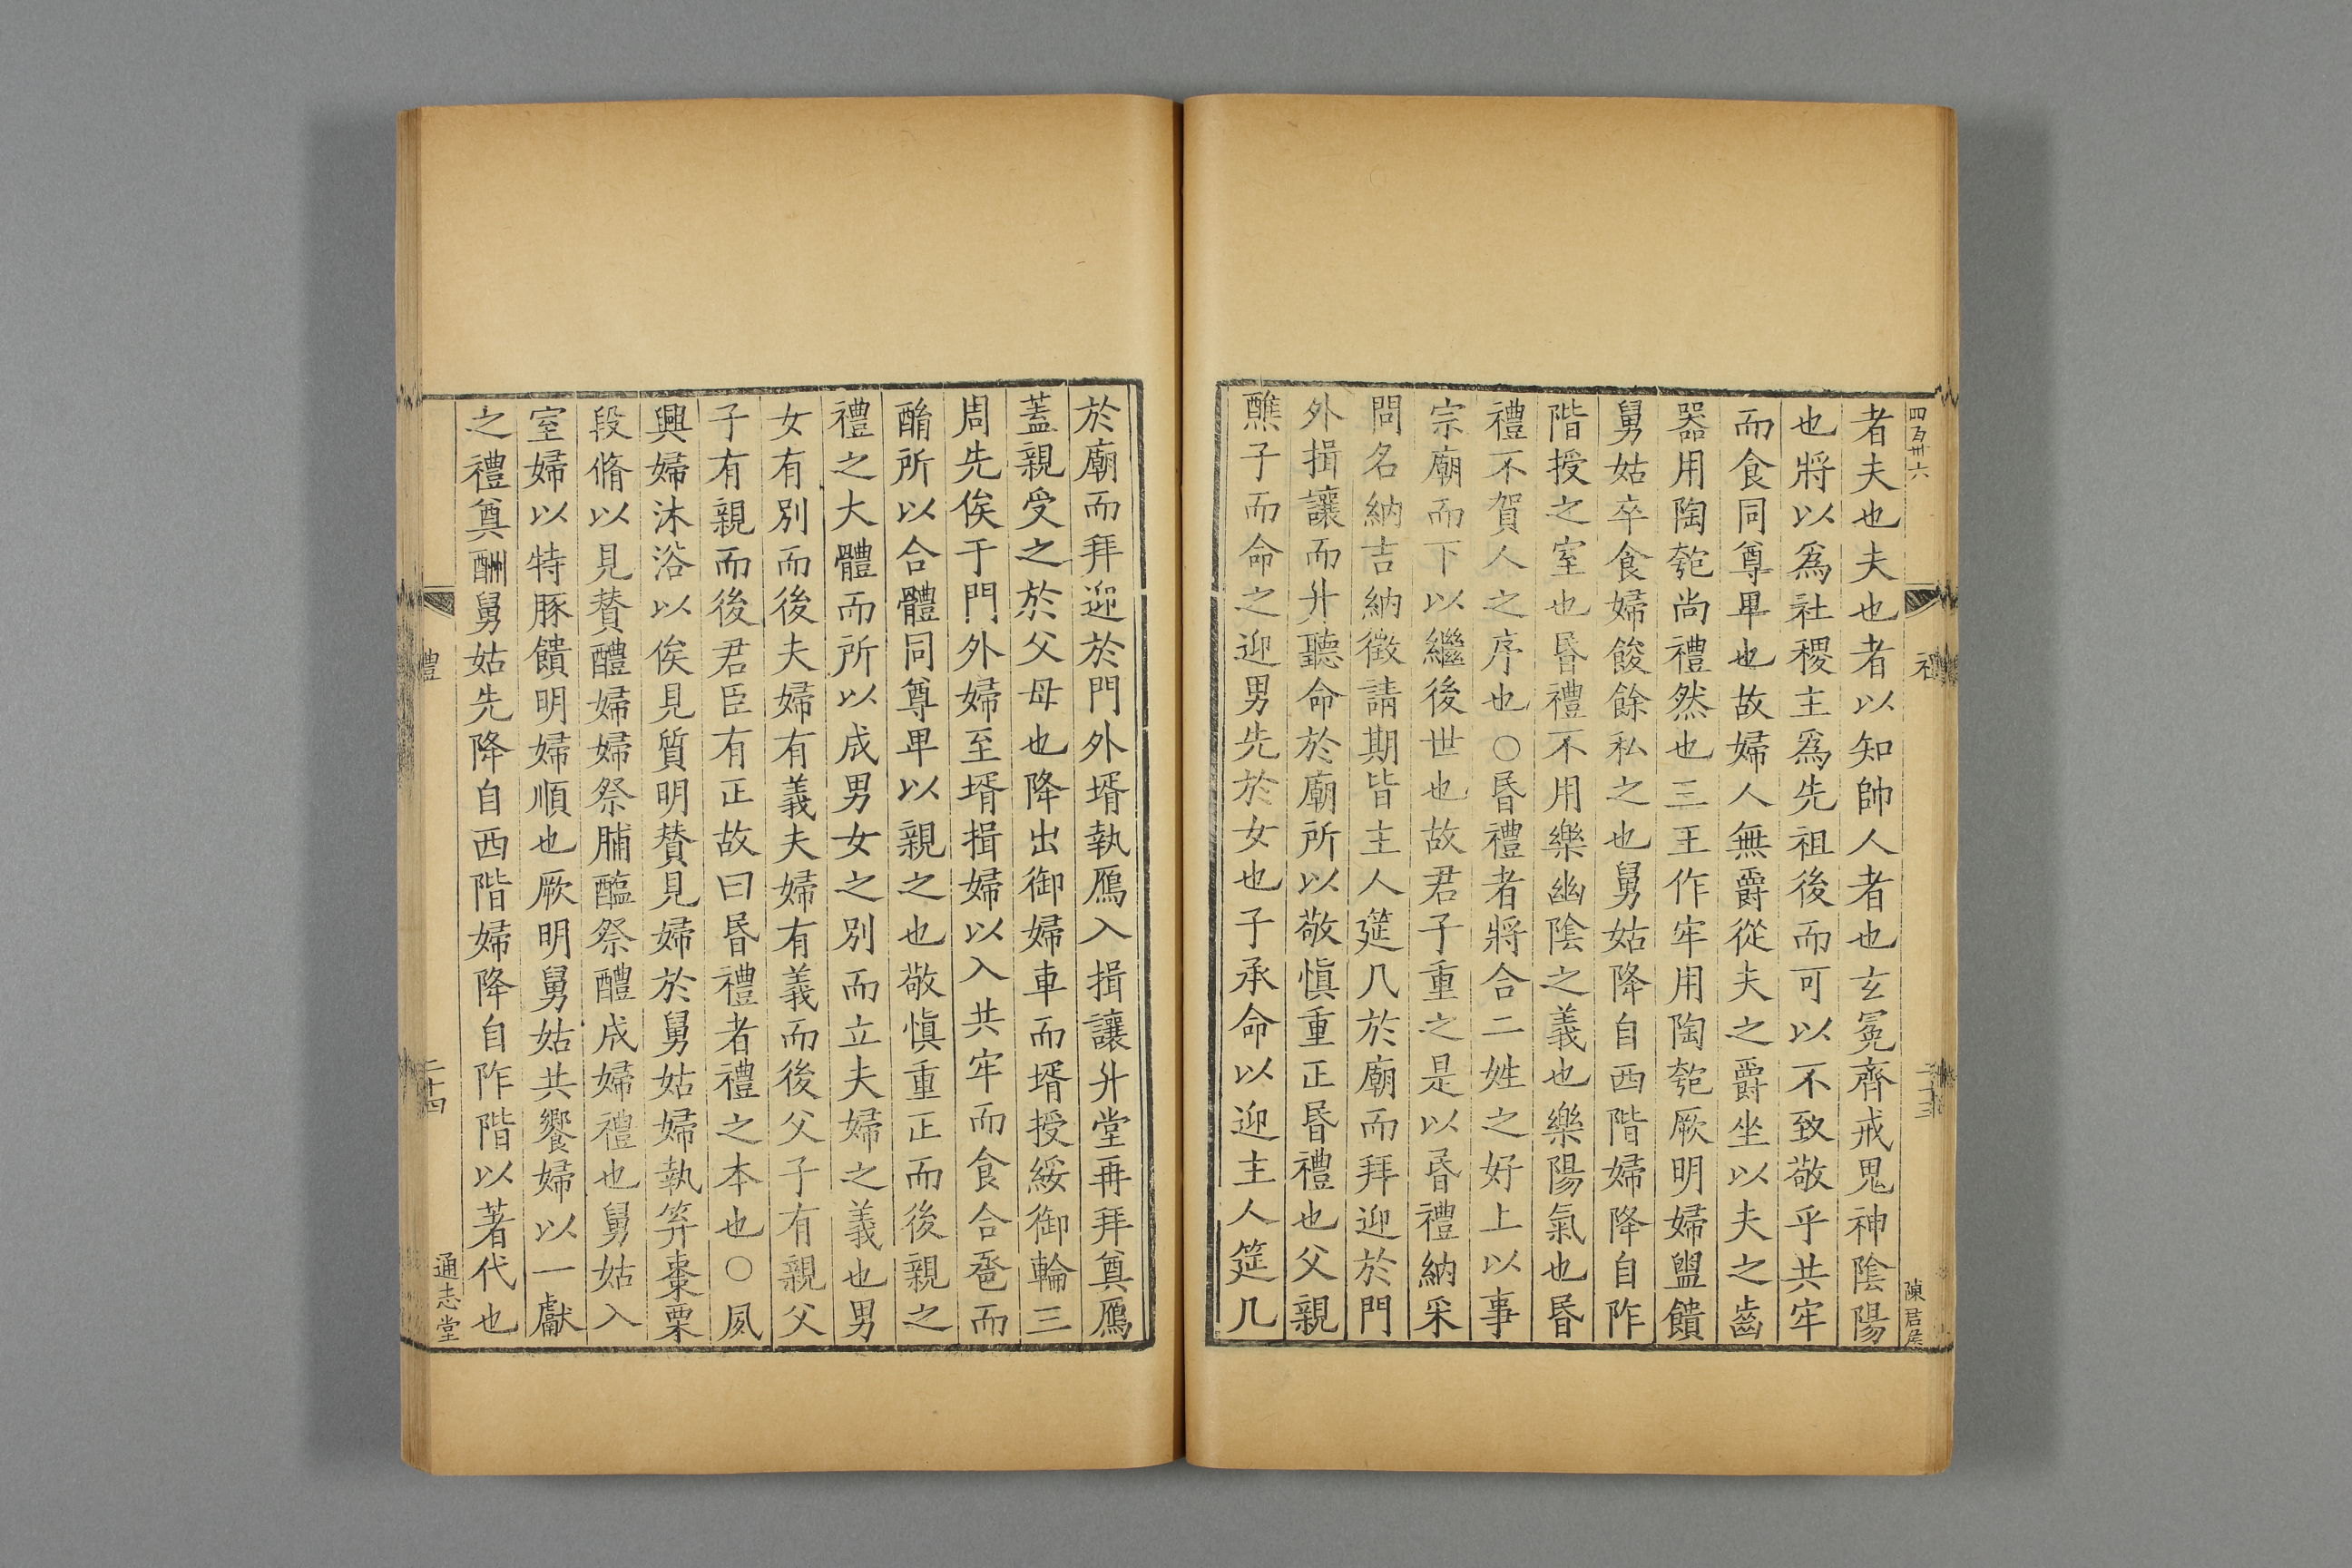 四百卅六
者夫也夫也者以知帥人者也玄冕齊戒鬼神陰陽
也將以爲社稷主爲先祖後而可以不致敬乎共牢
而食同尊卑也故婦人無爵從夫之爵坐以夫之齒
器用陶匏尚禮然也三王作牢用陶匏厥明婦盥饋
舅姑卒食婦餕餘私之也舅姑降自西階婦降自阼
階授之室也昬禮不用樂幽陰之義也樂陽氣也昬
禮不賀人之序也○昬禮者將合二姓之好上以事
宗廟而下以繼後世也故君子重之是以昬禮納采
問名納吉納徵請期皆主人筵几於廟而拜迎於門
外揖讓而升聽命於廟所以敬愼重正昬禮也父親
醮子而命之迎男先於女也子承命以迎主人筵几
於廟而拜迎於門外壻執鴈入揖讓升堂再拜奠鴈
蓋親受之於父母也降出御婦車而壻授綏御輪三
周先俟于門外婦至壻揖婦以入共牢而食合卺而
酳所以合體同尊卑以親之也敬愼重正而後親之
禮之大體而所以成男女之別而立夫婦之義也男
女有別而後夫婦有義夫婦有義而後父子有親父
子有親而後君臣有正故曰昬禮者禮之本也○夙
興婦沐浴以俟見質明贊見婦於舅姑婦執笲棗栗
段脩以見贊醴婦婦祭脯醢祭醴成婦禮也舅姑入
室婦以特豚饋明婦順也厥明舅姑共饗婦以一獻
之禮奠酬舅姑先降自西階婦降自阼階以著代也
禮
二十四
通志堂